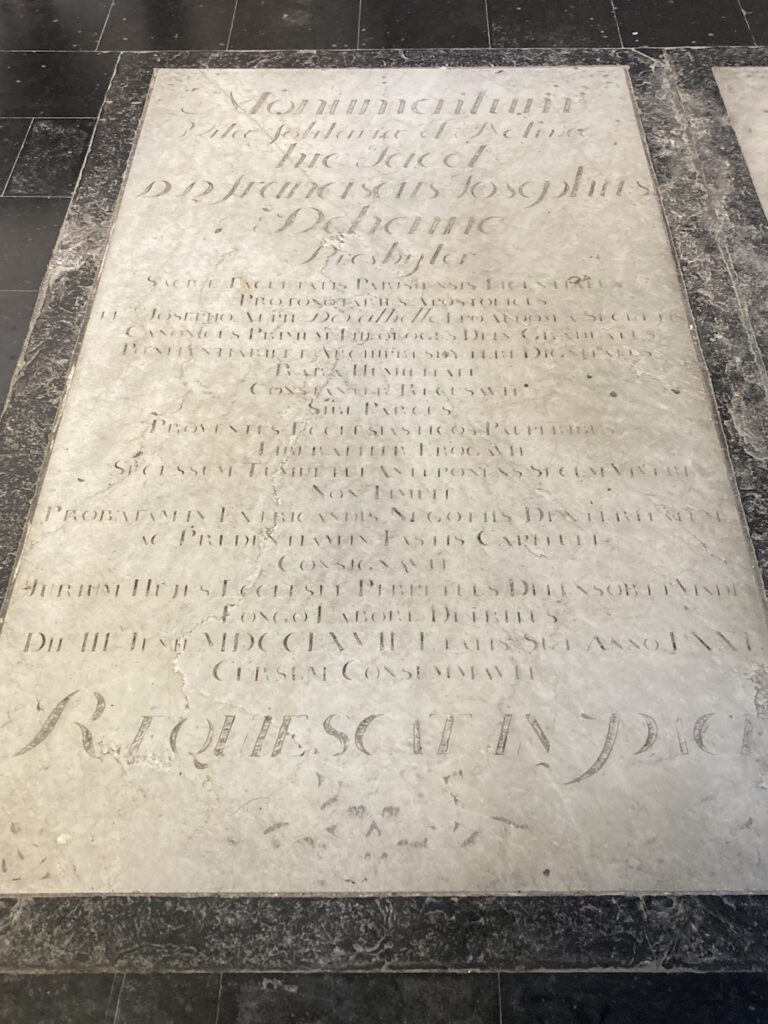 Monumentum
Vitæ solitariæ et Activæ
hic Jacet
D D franciscus Josephus
Dehenne
Presbyter
SACRÆ FACULTATIS PARISIENSIS LICENTIATUS
PROTONOTARIUS APOSTOLICUS
JOSEPHO ALPH De valbelle EPO AUDOM A SECRETIS
CANONICUS PRIMUM THEOLOGUS DEIN GRADUATUS
POENITENTIARII ET ARCHIPRESBYTERI DIGNITATES
RARA HUMILITATE
CONSTANTER RECUSAVIT
SIBI PARCUS
PROVENTUS ECCLESIASTICOS PAUPERIBUS
LIBERALITER EROGAVIT
SECESSUM TUMULTUI ANTEPONENS SECUM VIVERE
NON TIMUIT
PROBATAM IN EXTRICANDIS NEGOTIIS DEXTERITATEM
AC PRUDENTIAM IN FASTIS CAPITULI
CONSIGNAVIT
JURIUM HUJUS ECCLESIÆ PERPETUUS DEFENSOR ET VINDEX
LONGO LABORE DETRITUS
DIE III JUNII MDCCLXVII ETATIS SUÆ ANNO
CURSUM CONSUMMAVIT
REQUIESCAT IN PACE